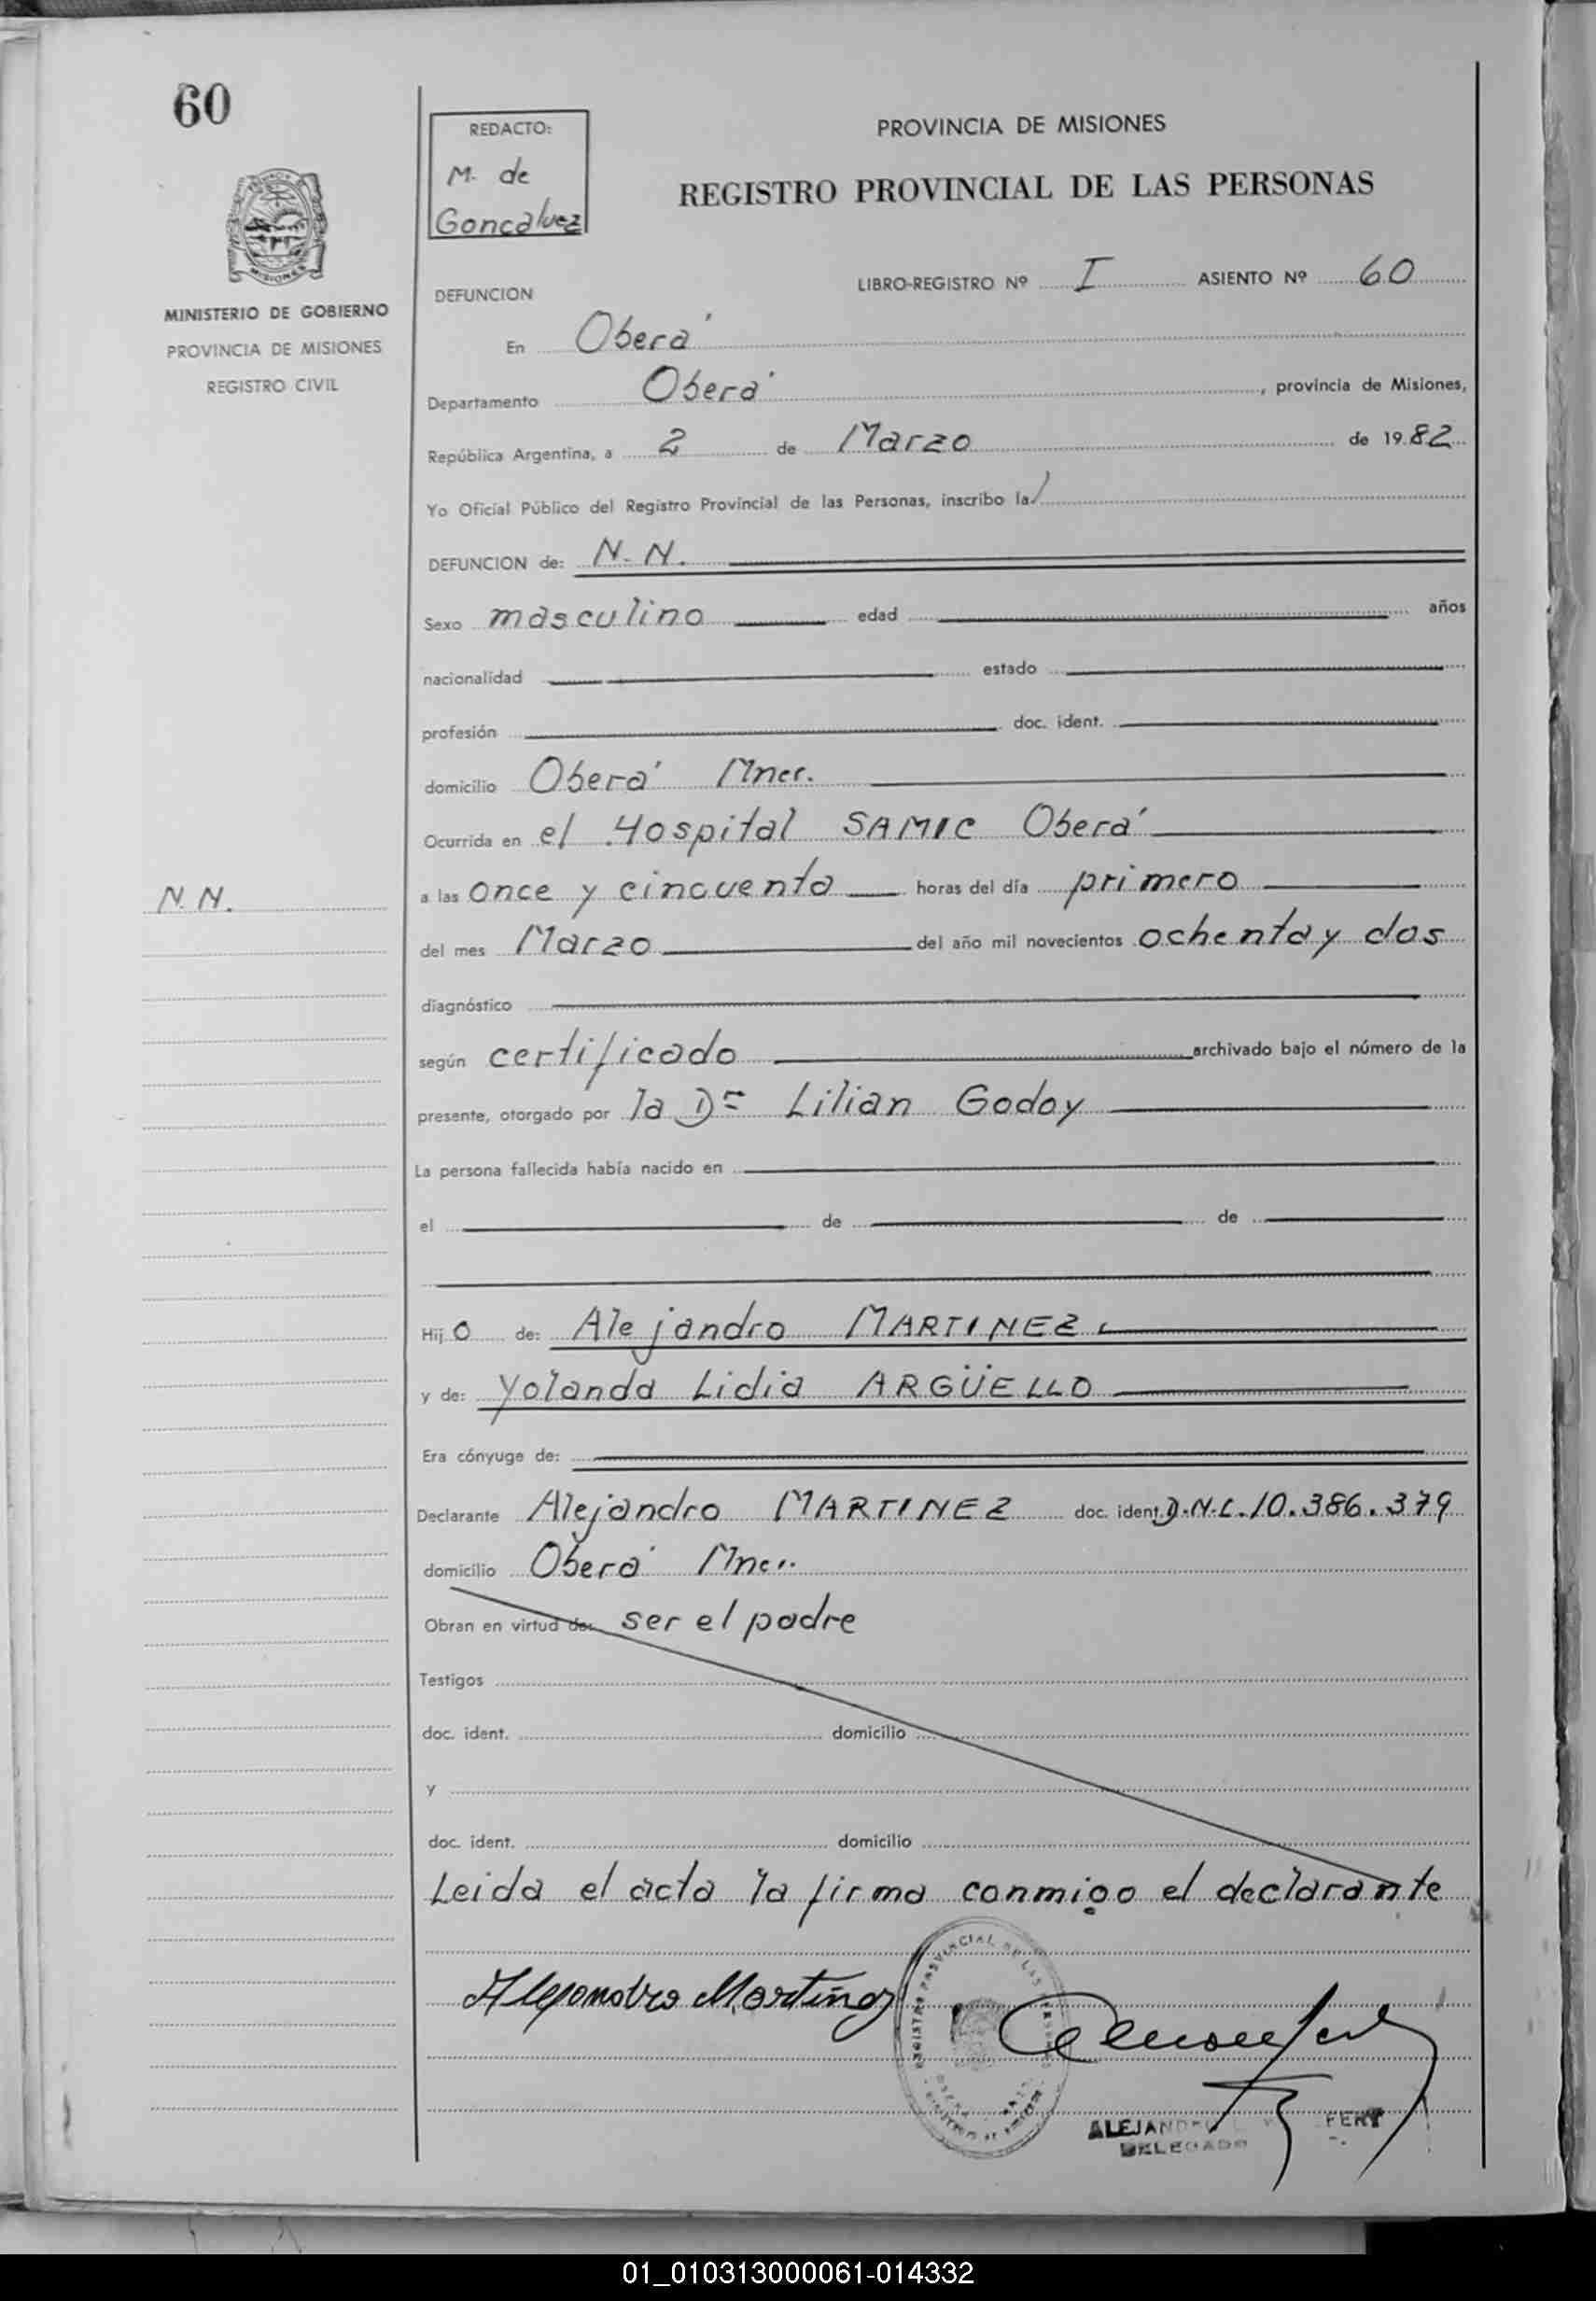 60
REDACTO:
M. de
Goncalvez
PROVINCIA DE MISIONES
REGISTRO PROVINCIAL DE LAS PERSONAS
MISIONES
MINISTERIO DE GOBIERNO
PROVINCIA DE MISIONES
REGISTRO CIVIL
DEFUNCION
LIBRO-REGISTRO Nº I ASIENTO Nº 60
En Oberá
Departamento Oberá, provincia de Misiones,
República Argentina, a 2 de Marzo de 1982
Yo Oficial Público del Registro Provincial de las Personas, inscribo la
DEFUNCION de: N. N.
Sexo masculino edad años
nacionalidad estado
profesión doc. ident.
domicilio Oberá Mnes.
Ocurrida en el Hospital SAMIC Oberá
N. N.
a las once y cincuenta horas del día primero
del mes Marzo del año mil novecientos ochenta y dos
diagnóstico
según certificado archivado bajo el número de la
presente, otorgado por la Dra Lilian Godoy
La persona fallecida había nacido en
el de de
Hijo de: Alejandro MARTINEZ
y de: Yolanda Lidia ARGÜELLO
Era cónyuge de:
Declarante Alejandro MARTINEZ doc. ident. D.N.I. 10.386.379
domicilio Oberá Mnes.
Obran en virtud de: ser el padre
Testigos
doc. ident. domicilio
y
doc. ident. domicilio
Leida el acta la firma conmigo el declarante
Alejandro Martinez
DELEGADO
01_010313000061-014332